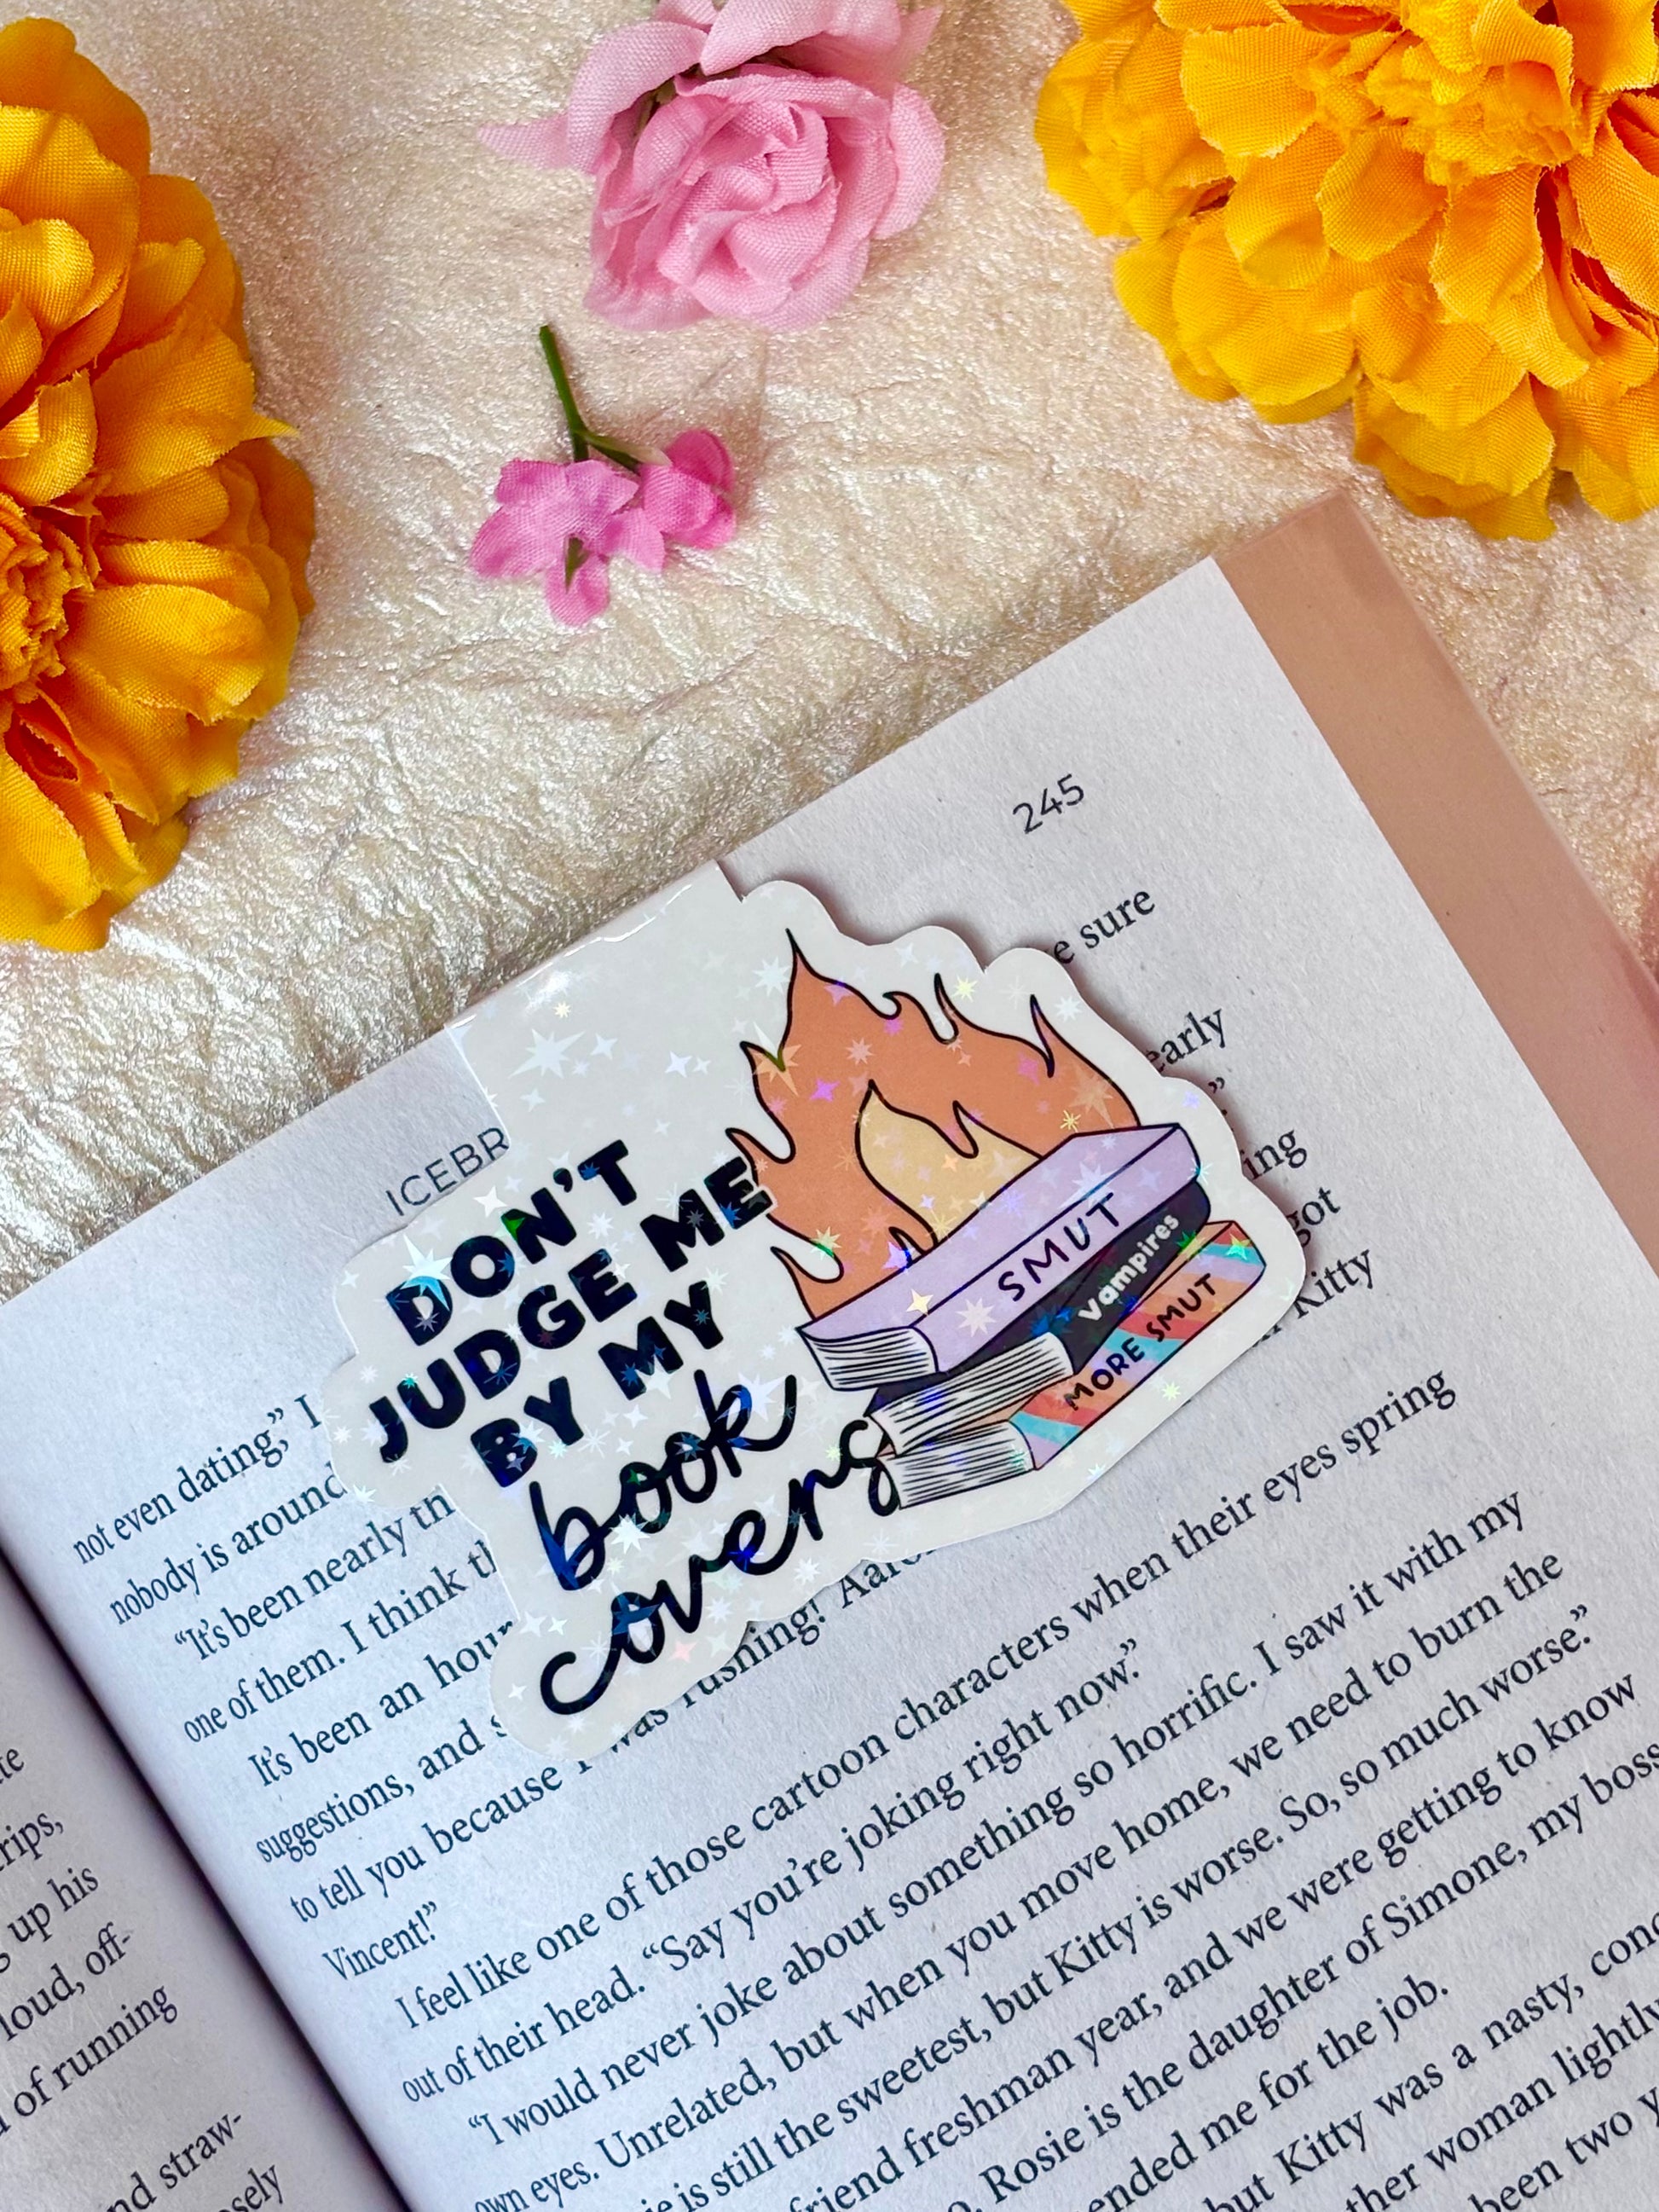 245
ICEBR
DON'T
JUDGE ME
BY MY
book
covers
SMUT
vampires
MORE SMUT
sure
early
ing
got
Kitty
not even dating,” I
nobody is around
“It’s been nearly th
one of them. I think th
It’s been an hour
suggestions, and s
to tell you because I was rushing! Aaro
Vincent!”
I feel like one of those cartoon characters when their eyes spring
out of their head. “Say you’re joking right now.”
“I would never joke about something so horrific. I saw it with my
own eyes. Unrelated, but when you move home, we need to burn the
ie is still the sweetest, but Kitty is worse. So, so much worse.”
friend freshman year, and we were getting to know
o. Rosie is the daughter of Simone, my boss
ended me for the job.
but Kitty was a nasty, conc
ther woman lightly
been two y
te
rips,
g up his
loud, off-
d of running
nd straw-
osely